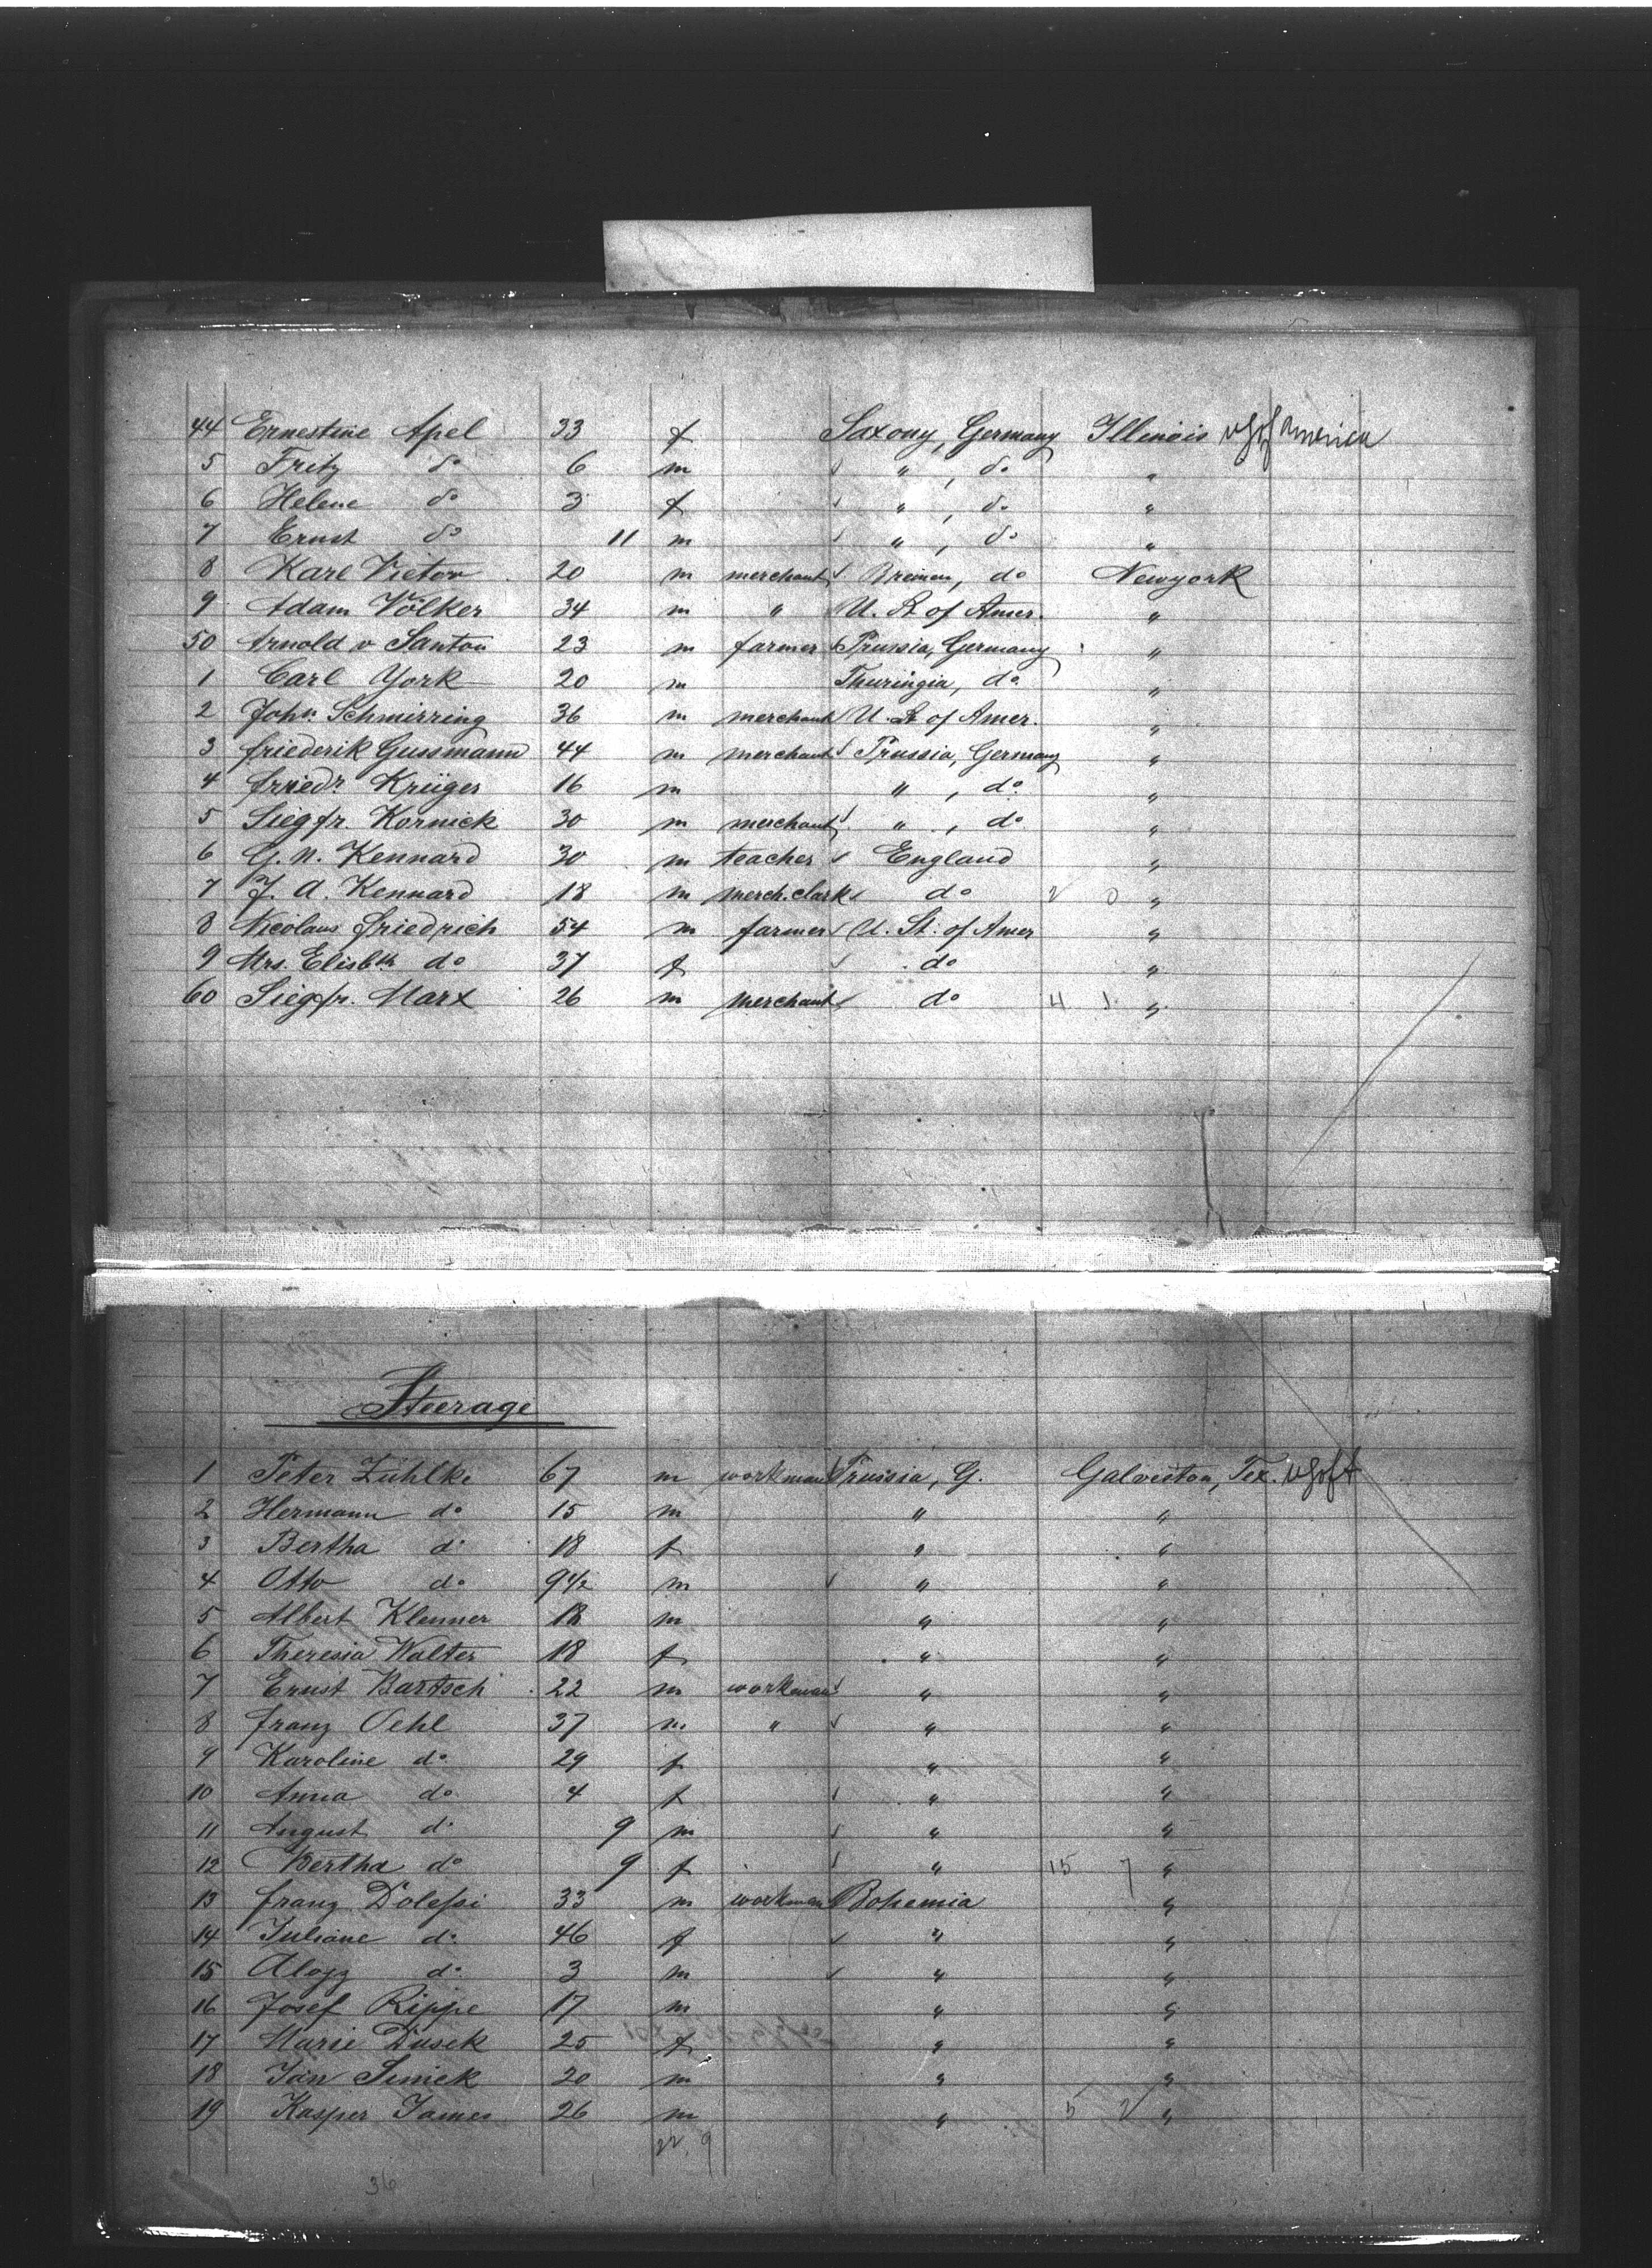 44 Ernestine Apel 33 f Saxony, Germany Illinois U S of America
5 Fritz do 6 m " , do "
6 Helene do 3 f " , do "
7 Ernst do 11 m " , do "
8 Karl Vietor 20 m merchant Bremen, do Newyork
9 Adam Völker 34 m " U. St of Amer. "
50 Arnold v Santon 23 m farmer Prussia, Germany "
1 Carl York 20 m Thuringia, do "
2 John Schmirring 36 m merchant U. St of Amer. "
3 Friederik Gussmann 44 m merchant Prussia, Germany "
4 Friedr. Krüger 16 m " , do "
5 Siegfr. Kornick 30 m merchant " , do "
6 G. N. Kennard 30 m teacher England "
7 J. A. Kennard 18 m merch. clark do 2 0 "
8 Nicolaus Friedrich 54 m farmer U. St. of Amer "
9 Mrs. Elisbth do 37 f do "
60 Siegfr. Marx 26 m merchant do 4 1 "
Steerage
1 Peter Zühlke 67 m workman Prussia, G. Galveston, Tex. U S of A
2 Hermann do 15 m " "
3 Bertha do 18 f " "
4 Otto do 9 1/2 m " "
5 Albert Klenner 18 m " "
6 Theresia Walter 18 f " "
7 Ernst Bartsch 22 m workman " "
8 Franz Oehl 37 m " " "
9 Karoline do 29 f " "
10 Anna do 4 f " "
11 August do 9 m " "
12 Bertha do 9 f " 15 7 "
13 Franz Dolessi 33 m workman Bohemia "
14 Juliane do 46 f " "
15 Aloyz do 3 m " "
16 Josef Rippe 17 m " "
17 Marie Dusek 25 f " "
18 Jan Simek 20 m " "
19 Kasper James 26 m " 5 2 "
22 9
36